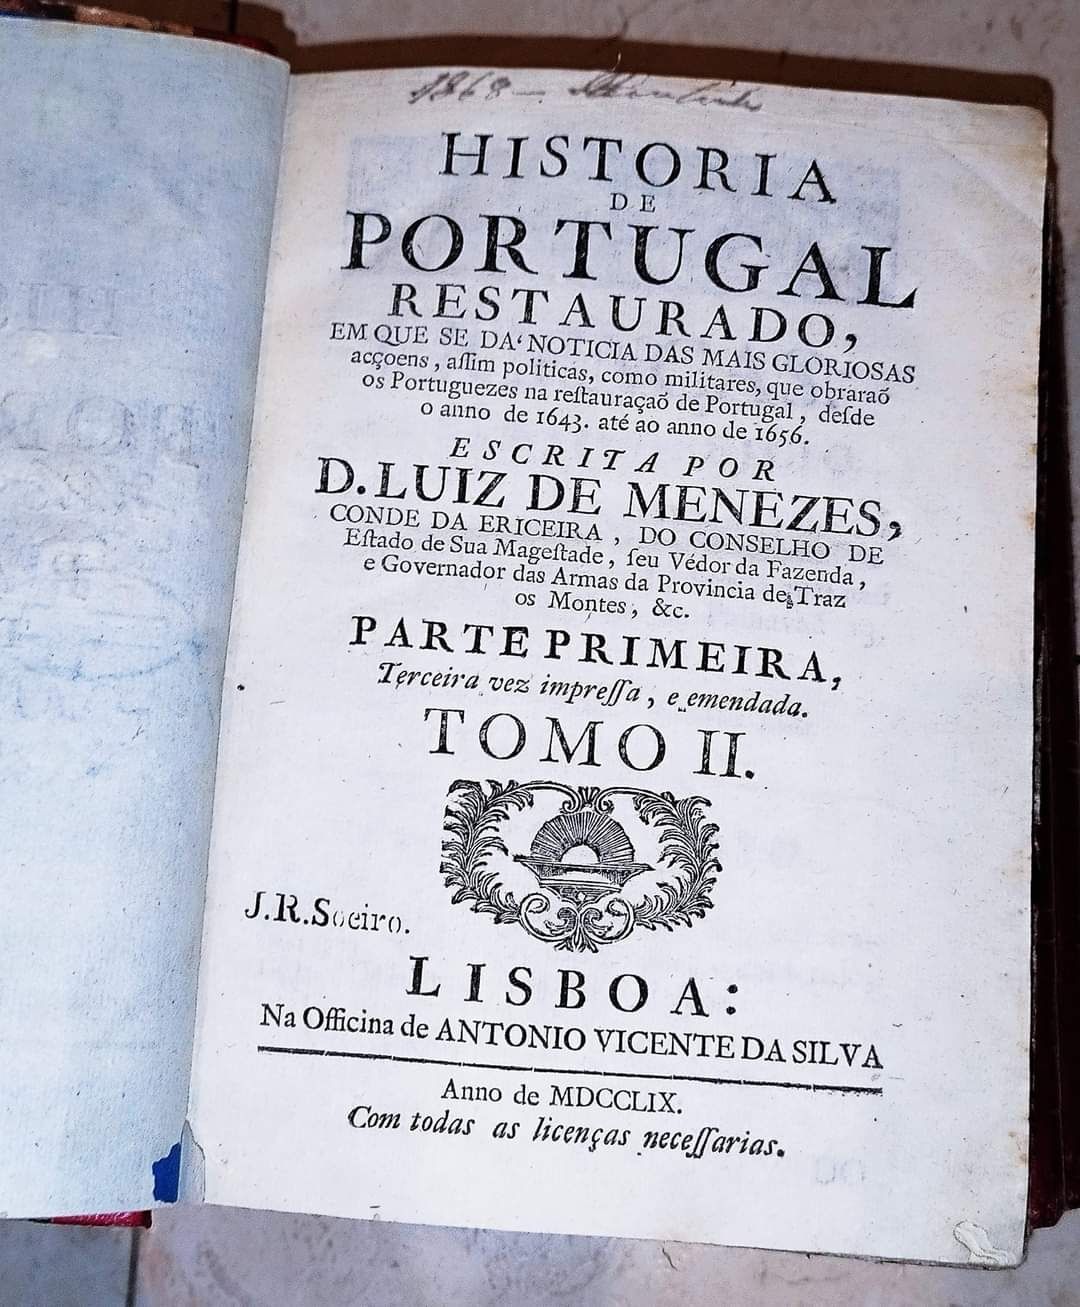 1868 —
HISTORIA
DE
PORTUGAL
RESTAURADO,
EM QUE SE DA' NOTICIA DAS MAIS GLORIOSAS
acçoens, aſſim politicas, como militares, que obraraõ
os Portuguezes na reſtauraçaõ de Portugal, deſde
o anno de 1643. até ao anno de 1656.
ESCRITA POR
D. LUIZ DE MENEZES,
CONDE DA ERICEIRA, DO CONSELHO DE
Eſtado de Sua Mageſtade, ſeu Védor da Fazenda,
e Governador das Armas da Provincia de Traz
os Montes, &c.
PARTE PRIMEIRA,
Terceira vez impreſſa, e emendada.
TOMO II.
J. R. Soeiro.
LISBOA:
Na Officina de ANTONIO VICENTE DA SILVA
Anno de MDCCLIX.
Com todas as licenças neceſſarias.